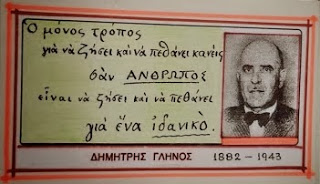 Ὁ μόνος τρόπος
γιὰ νὰ ζήσει καὶ νὰ πεθάνει κανείς
σὰν ΑΝΘΡΩΠΟς
εἶναι νὰ ζήσει καὶ νὰ πεθάνει
γιὰ ἕνα ἰδανικὸ.
ΔΗΜΗΤΡΗΣ ΓΛΗΝΟΣ 1882 - 1943